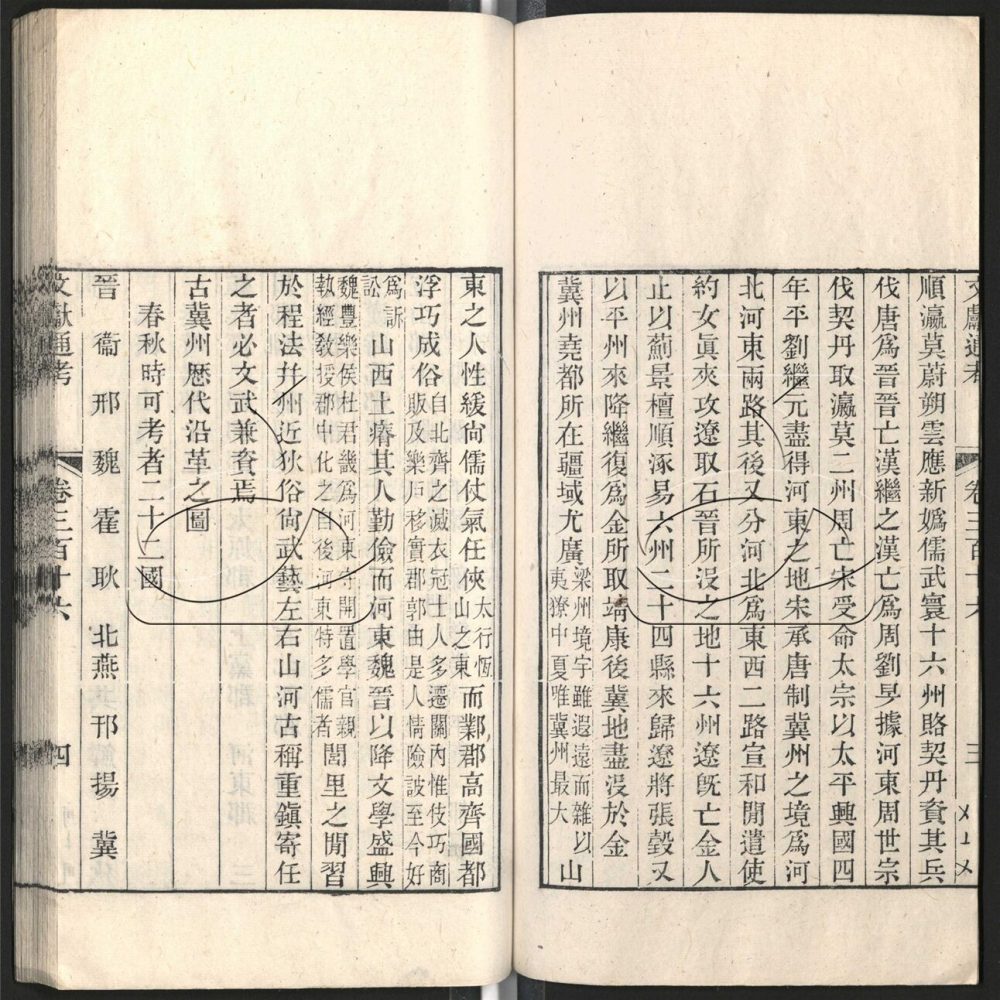 文獻通考 卷三百十六 三
順瀛莫蔚朔雲應新媯儒武寰十六州賂契丹資其兵
伐唐爲晉晉亡漢繼之漢亡爲周劉旻據河東周世宗
伐契丹取瀛莫二州周亡宋受命太宗以太平興國四
年平劉繼元盡得河東之地宋承唐制冀州之境爲河
北河東兩路其後又分河北爲東西二路宣和閒遣使
約女眞夾攻遼取石晉所沒之地十六州遼旣亡金人
止以薊景檀順涿易六州二十四縣來歸遼將張瑴又
以平州來降繼復爲金所取靖康後冀地盡沒於金
冀州堯都所在疆域尤廣梁州境宇雖遐遠而雜以夷獠中夏唯冀州最大山
東之人性緩尙儒仗氣任俠太行恆山之東而鄴郡高齊國都
浮巧成俗自北齊之滅衣冠士人多遷關內惟伎巧商販及樂戶移實郡郭由是人情險詖至今好
爲訴訟山西土瘠其人勤儉而河東魏晉以降文學盛興
魏豐樂侯杜君畿爲河東守開置學官親執經敎授郡中化之自後河東特多儒者閭里之閒習
於程法幷州近狄俗尙武藝左右山河古稱重鎭寄任
之者必文武兼資焉
古冀州歷代沿革之圖
春秋時可考者二十二國
晉 衞 邢 魏 霍 耿 北燕 邘 揚 冀
文獻通考 卷三百十六 四